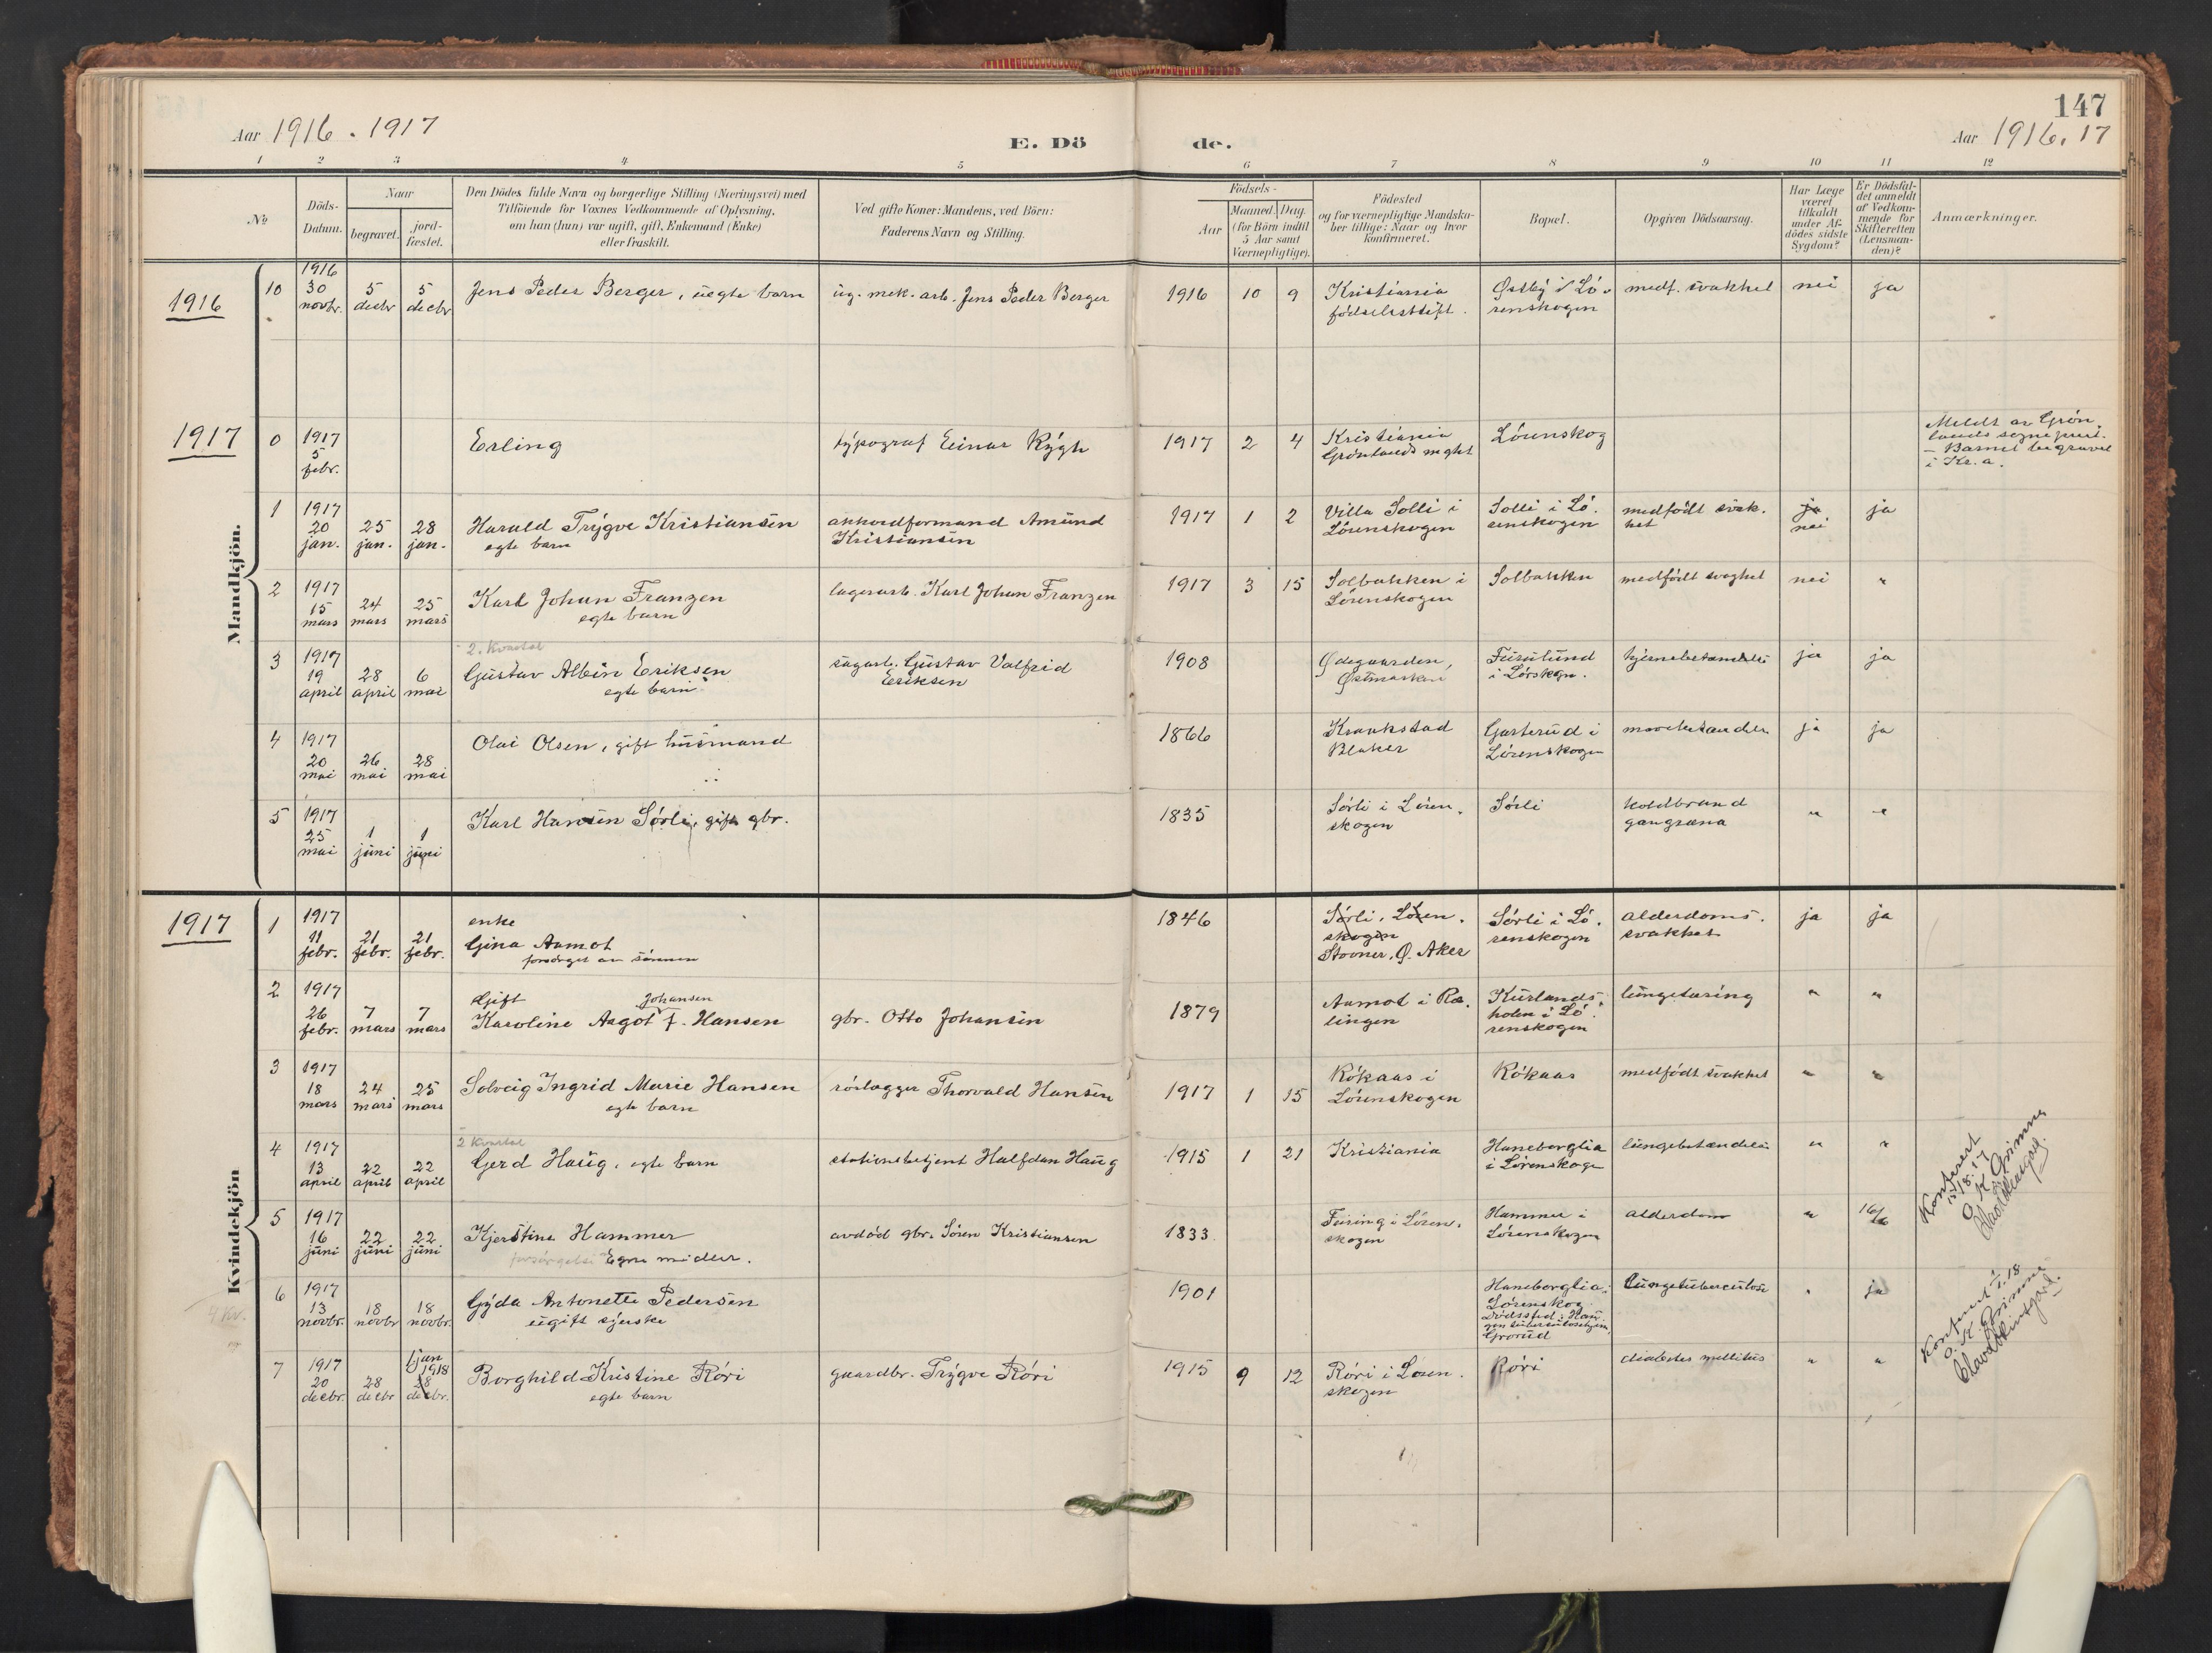 147
Aar 1916. 1917
E. Dö de.
Aar 1916. 17
1 2 3 4 5 6 7 8 9 10 11 12
No
Döds-
Datum.
Naar
begravet.
jord-
fæstet.
Den Dödes fulde Navn og borgerlige Stilling (Næringsvei) med
Tilföiende for Voxnes Vedkommende af Oplysning,
om han (hun) var ugift, gift, Enkemand (Enke)
eller fraskilt.
Ved gifte Koner: Mandens, ved Börn:
Faderens Navn og Stilling.
Födsels-
Aar
Maaned. Dag.
(for Börn indtil
5 Aar samt
Værnepligtige).
Födested
og for værnepligtige Mandska-
ber tillige: Naar og hvor
konfirmeret.
Bopæl.
Opgiven Dödsaarsag.
Har Læge
været
tilkaldt
under Af-
dödes sidste
Sygdom?
Er Dödsfal-
det anmeldt
af Vedkom-
mende for
Skifteretten
(Lensman-
den)?
Anmærkninger.
Mandkjön.
1916
10
1916
30
novbr.
5
decbr
5
decbr
Jens Peder Berger, uegte barn
ug. mek. arb. Jens Peder Berger
1916 10 9
Kristiania
födselsstift.
Østby i Lö-
renskogen
medf. svakhet
nei
ja
1917
0
1917
5
febr.
Erling
typograf Einar Rygh
1917 2 4
Kristiania
Grönlands mght
Lörenskog
Meldt av Grön
lands sogneprest.
- Barnet begravet
i Kr.a.
1
1917
20
jan.
25
jan.
28
jan.
Harald Trygve Kristiansen
egte barn
akkordformand Amund
Kristiansen
1917 1 2
Villa Solli i
Lörenskogen
Solli i Lö.
renskogen
medfödt svak.
het
ja
nei
ja
2
1917
15
mars
24
mars
25
mars
Karl Johan Franzen
egte barn
lagerarb. Karl Johan Franzen
1917 3 15
Solbakken i
Lörenskogen
Solbakken
medfödt svaghet
nei
"
2. Kvartal
3
1917
19
april
28
april
6
mai
Gustav Albin Eriksen
egte barn
sagarb. Gustav Valfrid
Eriksen
1908
Ødegaarden,
Østmarken
Furulund
i Lörskgn.
hjernebetændelse
ja
ja
4
1917
20
mai
26
mai
28
mai
Olai Olsen, gift husmand
1866
Kraakstad
Blaker
Gasterud i
Lörenskogen
ja
ja
5
1917
25
mai
1
juni
1
juni
Karl Hansen Sörli, gift gbr.
1835
Sörli i Lören.
skogen
Sörli
koldbrand
gangræna
"
"
Kvindekjön
1917
1
1917
11
febr.
21
febr.
21
febr.
enke
Gina Aamot
forsörget av sönnen
1846
Sörli, Lören.
skogen
Stovner, Ø. Aker
Sörli i Lö.
renskogen
alderdoms.
svakhet
ja
ja
2
1917
26
febr.
7
mars
7
mars
Gift
Johansen
Karoline Aagot f. Hansen
gbr. Otto Johansen
1879
Aamot i Ræ.
lingen
Kurlands.
holen i Lö.
renskogen
lungetæring
"
"
3
1917
18
mars
24
mars
25
mars
Solveig Ingrid Marie Hansen
egte barn
rörlægger Thorvald Hansen
1917 1 15
Rökaas i
Lörenskogen
Rökaas
medfödt svakhet
"
"
2 Kvartal
4
1917
13
april
22
april
22
april
Gerd Haug, egte barn
stationsbetjent Halfdan Haug
1915 1 21
Kristiania
Haneborglia
i Lörenskogn
lungebetændelse
"
"
5
1917
16
juni
22
juni
22
juni
Kjerstine Hammer
forsörgelse Egne midler.
avdöd gbr. Sören Kristiansen
1833
Fösing i Lören.
skogen
Hammer i
Lörenskogen
alderdom
"
16/6
Konferert
15.18.17
O. K. Grimnes
6
1917
13
novbr.
18
novbr
18
novbr.
4 Kv.
Gyda Antonette Pedersen
ugift syerske
1901
Haneborglia,
Lörenskog
Dödssted: Hau
gen tuberkulosehjem
Grorud
Lungetuberculose
"
ja
7
1917
20
decbr.
28
decbr
1 jan
1918
28
decbr.
Borghild Kristine Röri
egte barn
gaardbr. Trygve Röri
1915 9 12
Röri i Lören.
skogen
Röri
diabetes mellitus
"
"
Konferert 1/1.18
O. K. Grimnes